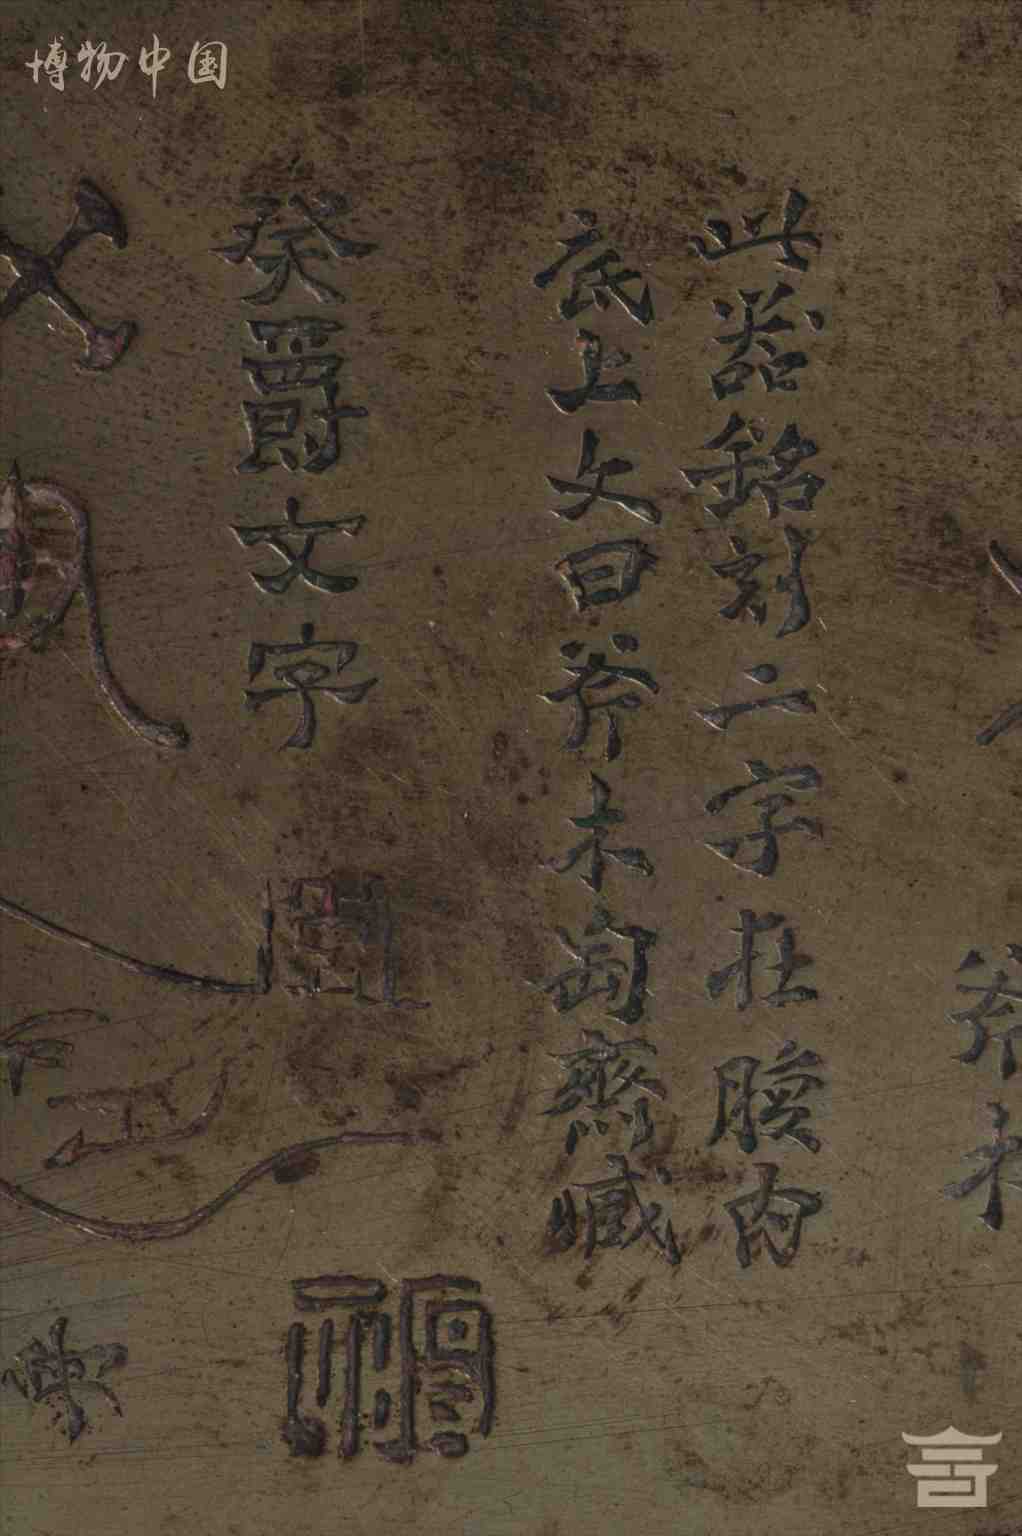 博物中国
斧木
此器銘刻二字在腹内
底上文曰斧木匋齋臧
癸爵文字